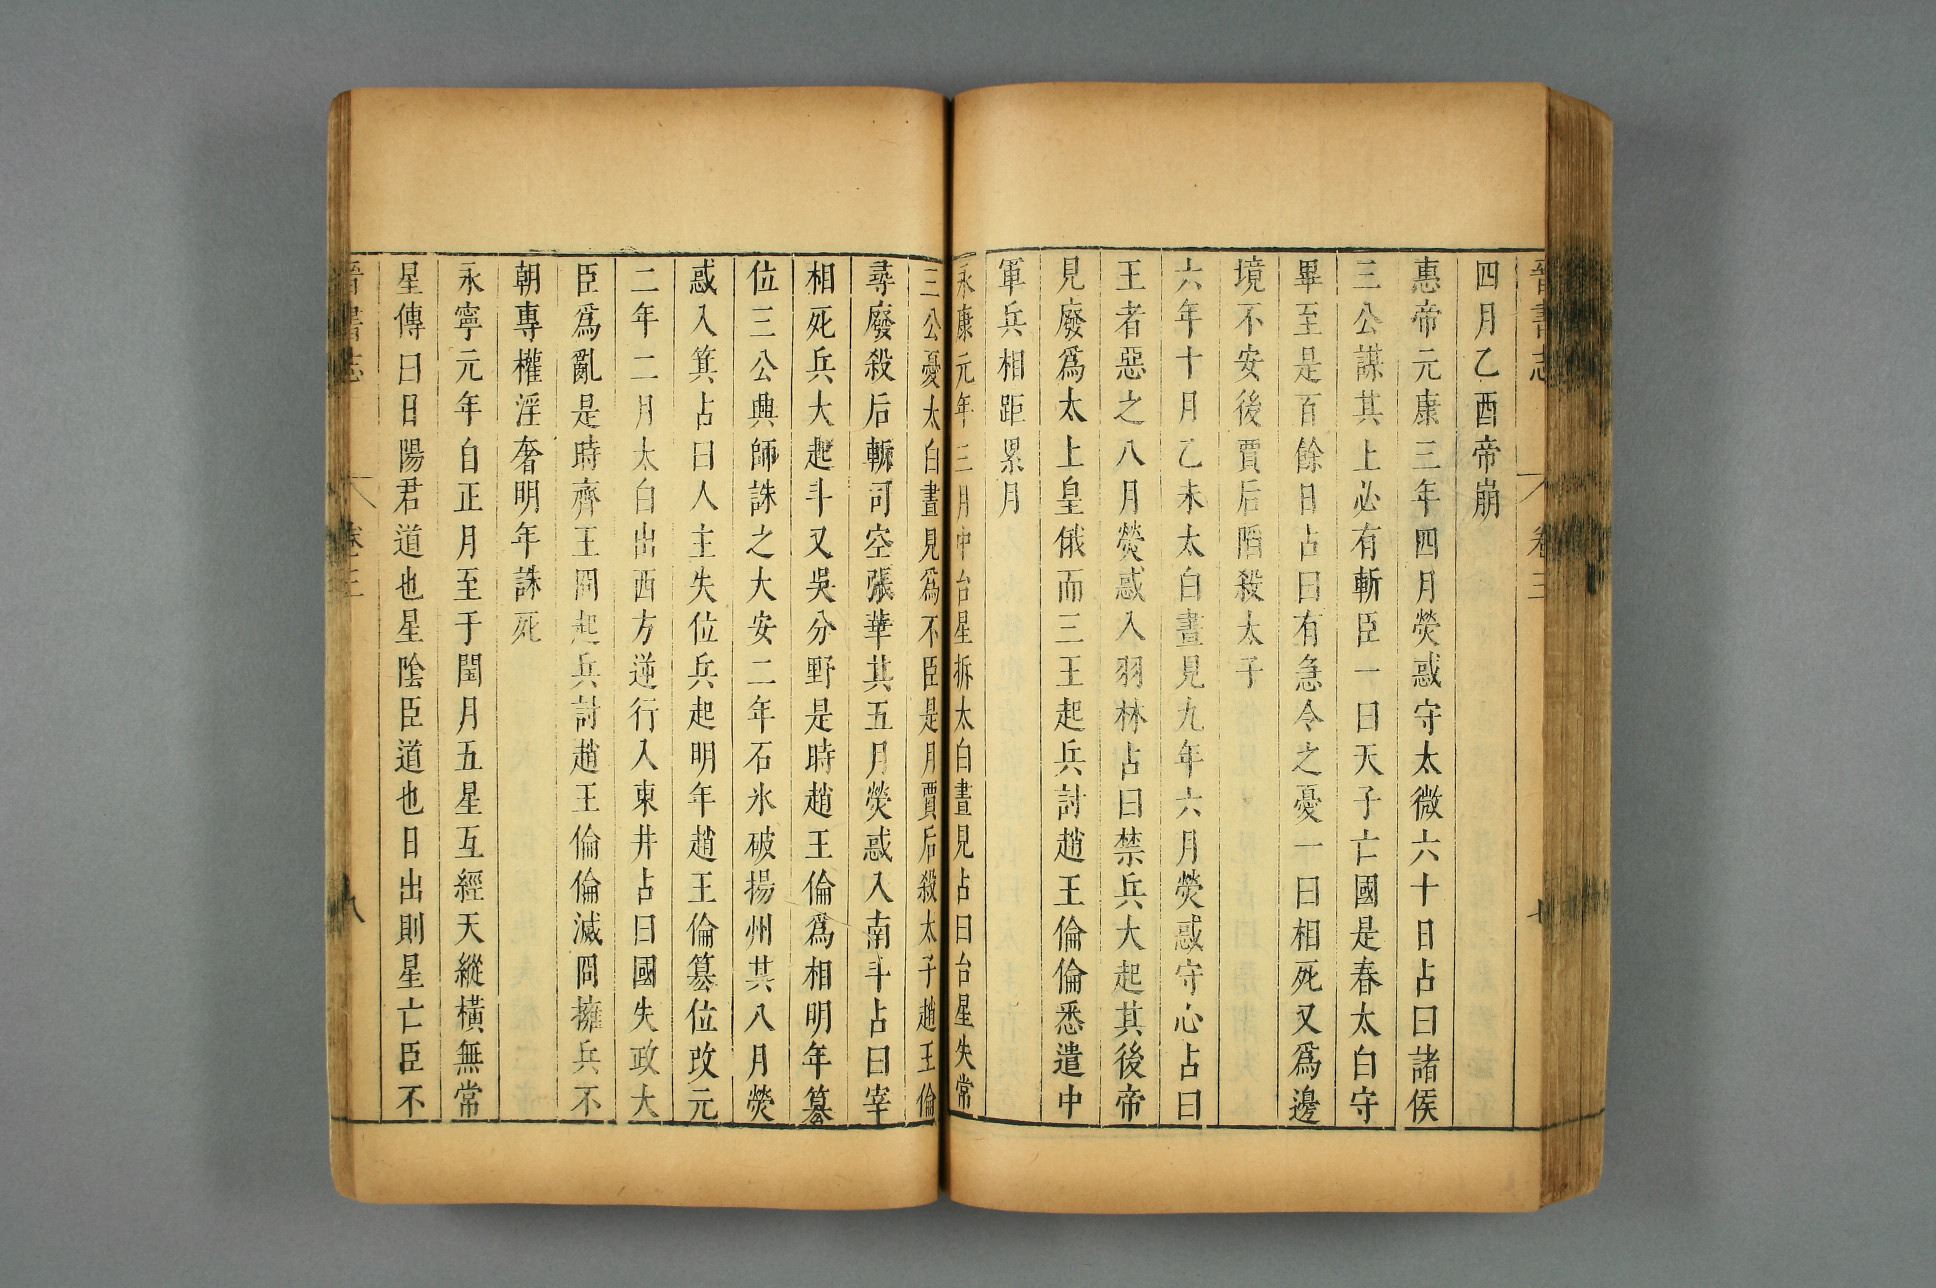 晉書志 卷三 七
四月乙酉帝崩
惠帝元康三年四月熒惑守太微六十日占曰諸侯
三公謀其上必有斬臣一曰天子亡國是春太白守
畢至是百餘日占曰有急令之憂一曰相死又爲邊
境不安後賈后陷殺太子
六年十月乙未太白晝見九年六月熒惑守心占曰
王者惡之八月熒惑入羽林占曰禁兵大起其後帝
見廢爲太上皇俄而三王起兵討趙王倫倫悉遣中
軍兵相距累月
永康元年三月中台星拆太白晝見占曰台星失常
三公憂太白晝見爲不臣是月賈后殺太子趙王倫
尋廢殺后斬司空張華其五月熒惑入南斗占曰宰
相死兵大起斗又吳分野是時趙王倫爲相明年篡
位三公興師誅之大安二年石氷破揚州其八月熒
惑入箕占曰人主失位兵起明年趙王倫篡位改元
二年二月太白出西方逆行入東井占曰國失政大
臣爲亂是時齊王冏起兵討趙王倫倫滅冏擁兵不
朝專權淫奢明年誅死
永寧元年自正月至于閏月五星互經天縱橫無常
星傳曰日陽君道也星陰臣道也日出則星亡臣不
晉書志 卷三 八